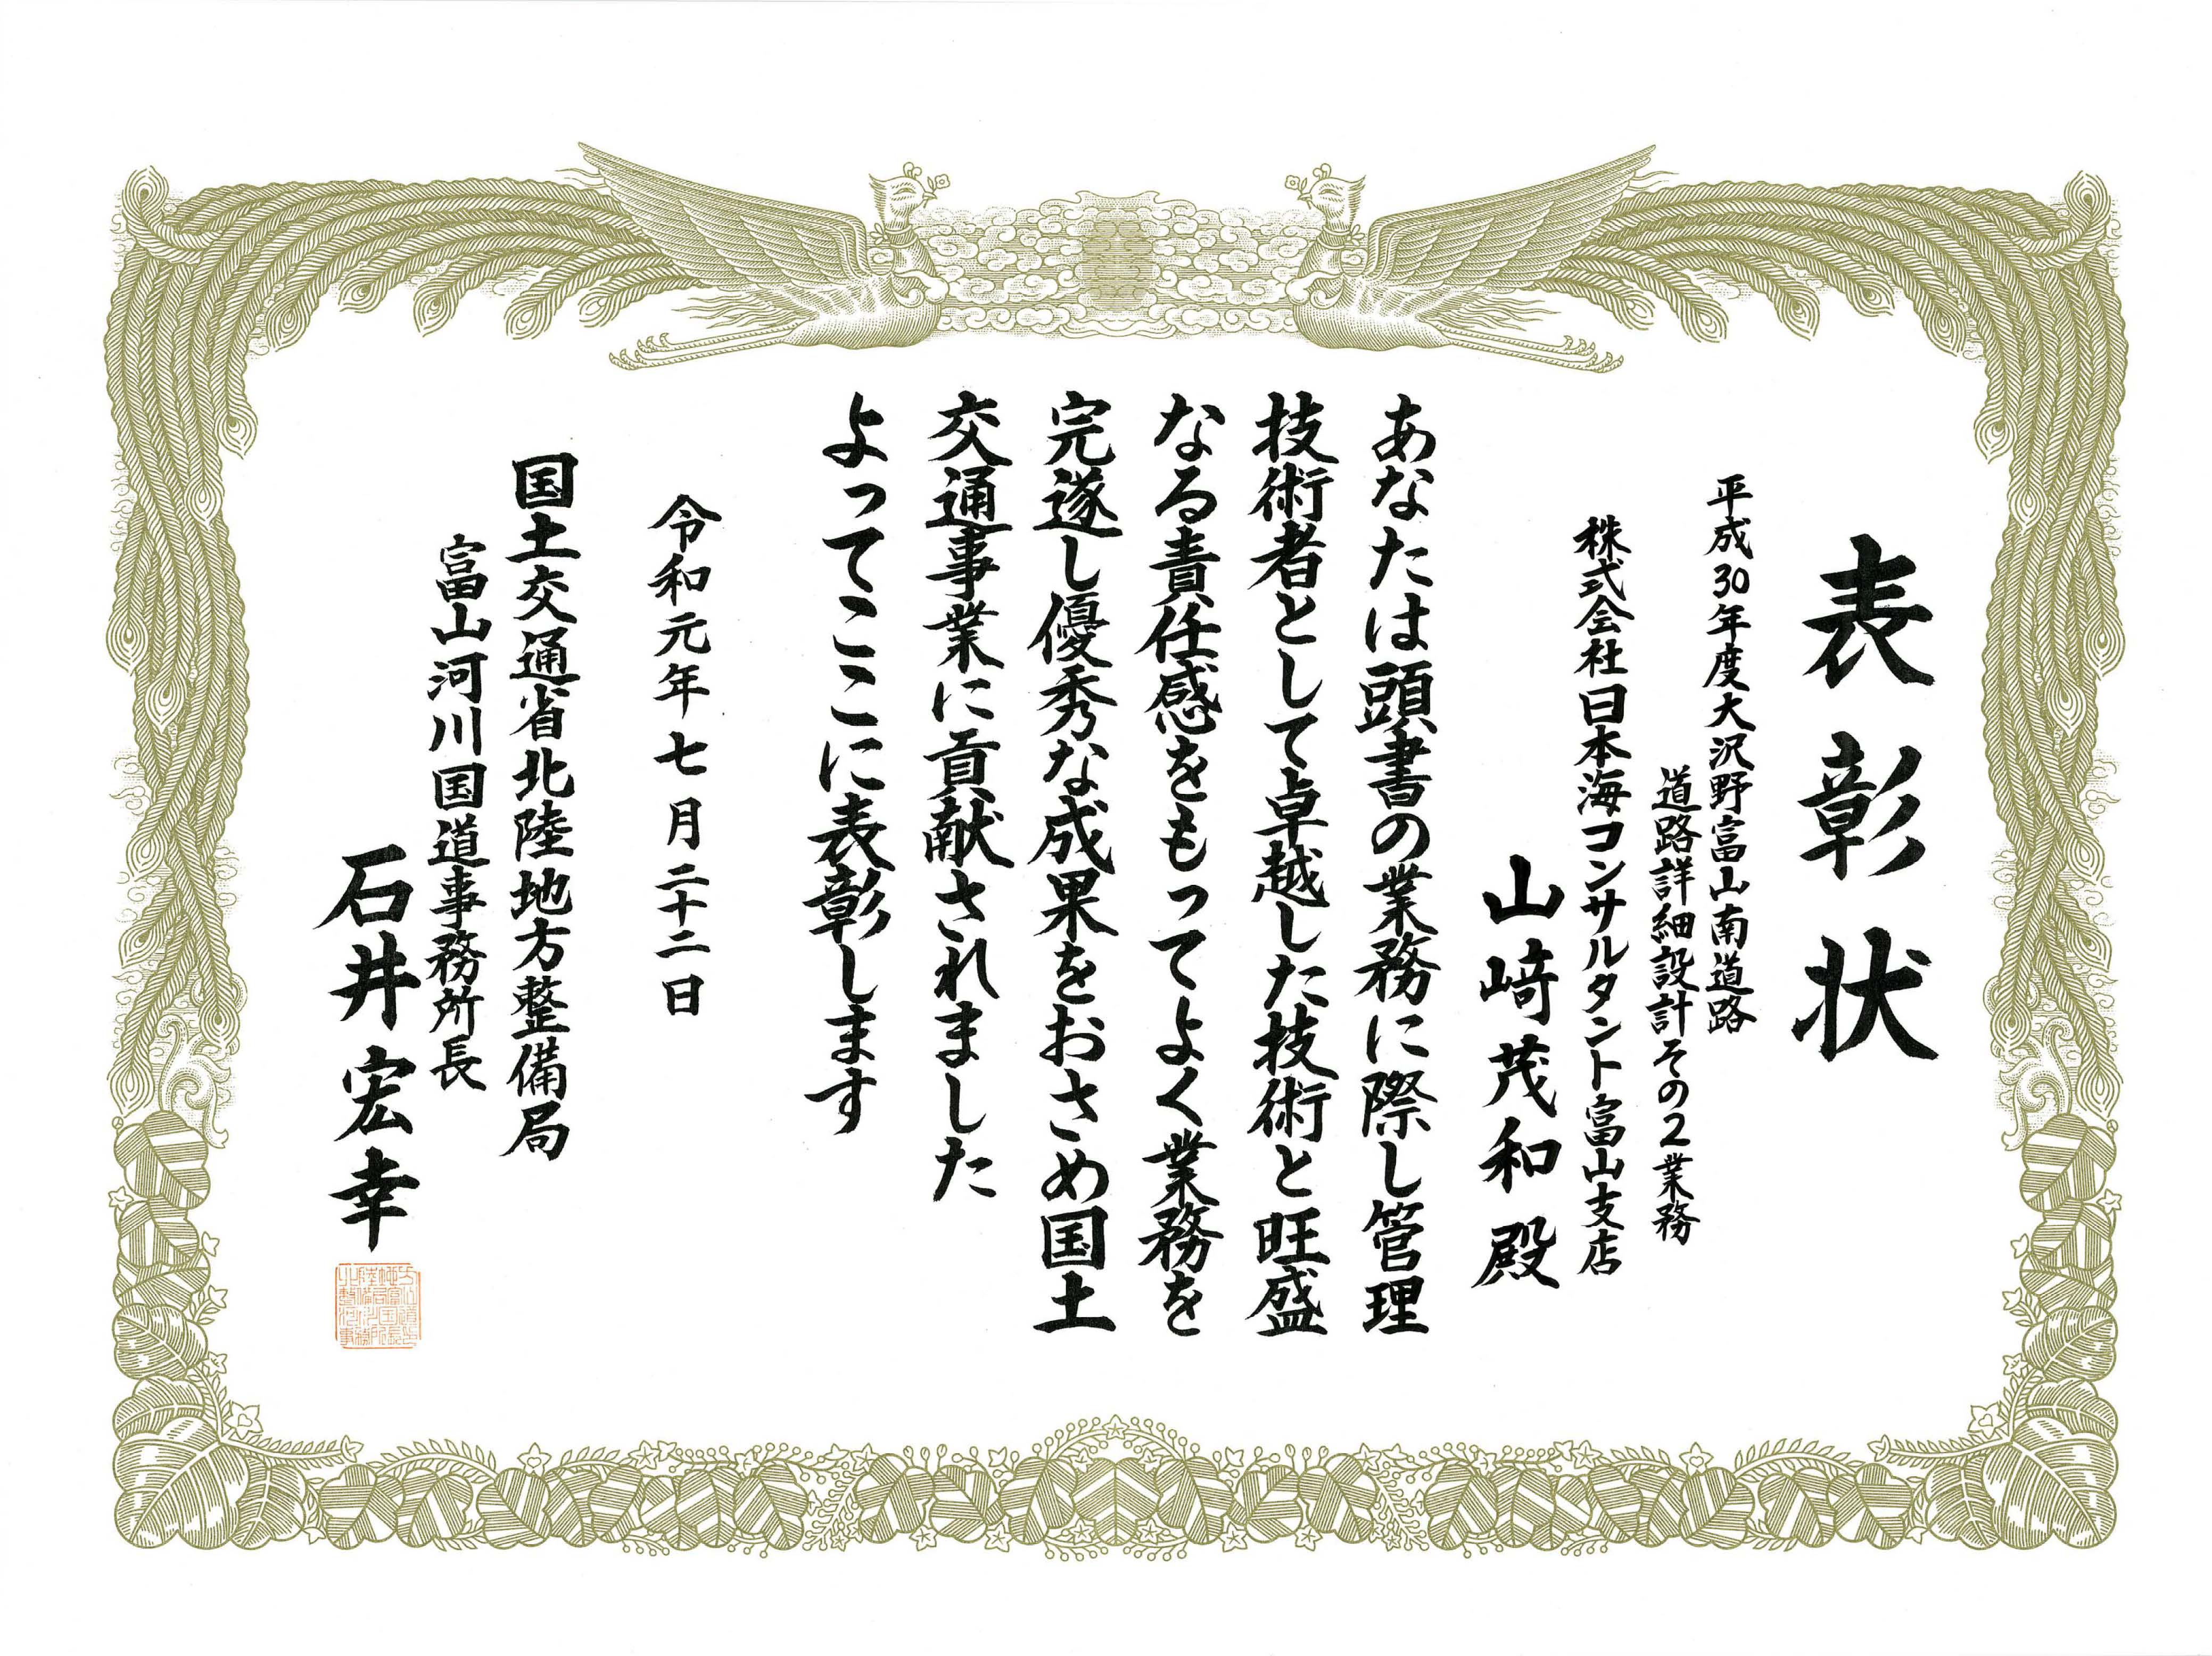 表彰状
平成30年度大沢野富山南道路
道路詳細設計その2業務
株式会社日本海コンサルタント富山支店
山﨑茂和殿
あなたは頭書の業務に際し管理
技術者として卓越した技術と旺盛
なる責任感をもってよく業務を
完遂し優秀な成果をおさめ国土
交通事業に貢献されました
よってここに表彰します
令和元年七月二十二日
国土交通省北陸地方整備局
富山河川国道事務所長
石井宏幸